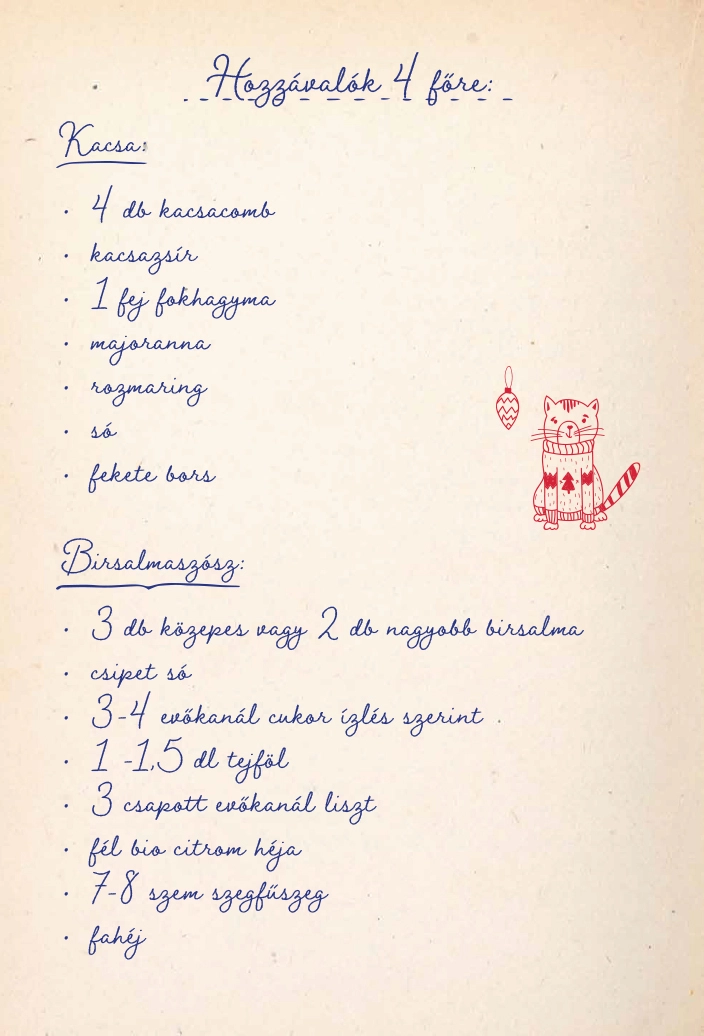 Hozzávalók 4 főre:
Kacsa:
• 4 db kacsacomb
• kacsazsír
• 1 fej fokhagyma
• majoranna
• rozmaring
• só
• fekete bors
Birsalmaszósz:
• 3 db közepes vagy 2 db nagyobb birsalma
• csipet só
• 3-4 evőkanál cukor ízlés szerint
• 1 -1,5 dl tejföl
• 3 csapott evőkanál liszt
• fél bio citrom héja
• 7-8 szem szegfűszeg
• fahéj